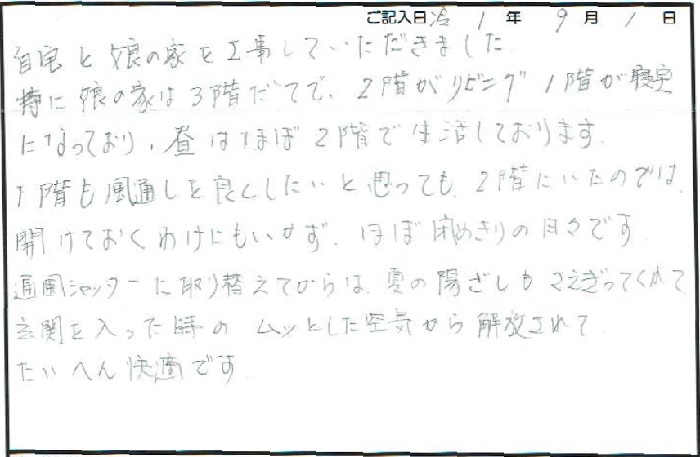 ご記入日 1年9月1日
自宅と娘の家を工事していただきました。
特に娘の家は3階だてで、2階がリビング 1階が寝室
になっており、昼はほぼ2階で生活しております。
1階も風通しを良くしたいと思っても、2階にいたのでは、
開けておくわけにもいかず、ほぼ閉めきりの日々です。
通風シャッターに取り替えてからは、夏の陽ざしもさえぎってくれて、
玄関を入った時の ムッとした空気から解放されて、
たいへん快適です。